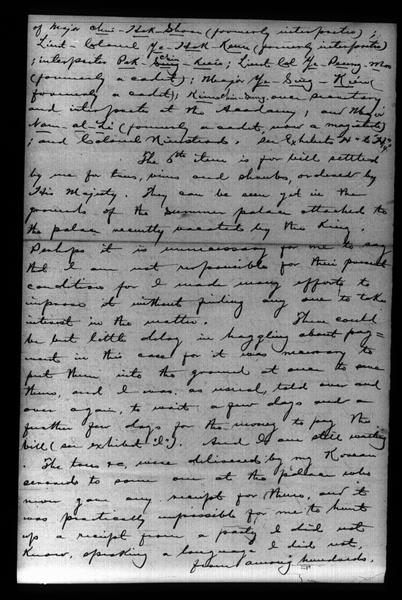 of Major Chui-Hak-Shoon (formerly interpreter);
Lieut-Colonel Ye-Hak-Kun (formerly interpreter)
; interpreter Pak- Kusic; Lieut Col Ye-Pyung-Moo
(formerly a cadet); Major Ye-Sing-Kiew (
formerly a cadet); over secretary
and interpreter at the Academy; and Major
Nam- (formerly a cadet, now a magistrate)
; and Colonel Nienstead. See Exhibits H to
The 5th item is for bill settled
by me for trees, vines and shrubs, ordered by
His Majesty. They can be seen yet in the
grounds of the Summer palace attached to
the palace recently vacated by the King.
Perhaps it is unnecessary for me to say
that I am not responsible for their present
condition for I made many efforts to
improve it without finding any one to take
interest in the matter. There could
be but little delay in haggling about pay=
ment in this case for it was necessary to
put them into the ground at once to save
them, and I was, as usual, told over and
over again, to wait a few days and a
further few days for the money to pay the
bill (see exhibit "I"). And I am still waiting
. The trees &c, were delivered by my Korean
servants to some one at the palace who
never gave any receipt for them, and it
was practically impossible for me to hunt
up a receipt from a party I did not
know, speaking a language I did not,
from among hundreds.